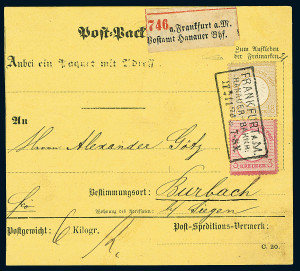 Post-Pack
746 a. Frankfurt a.M.
Postamt Hanauer Bhf.
Zum Aufkleben
der Freimarken
Anbei ein Paquet mit
FRANKFURT A.M.
HANAUER BAHNH.
An
Herrn Alexander Götz
KREUZER
Bestimmungsort: Burbach
Wohnung des
b/ Siegen
Postgewicht: 6 Kilogr.
Post-Speditions-Vermerk:
C. 20.